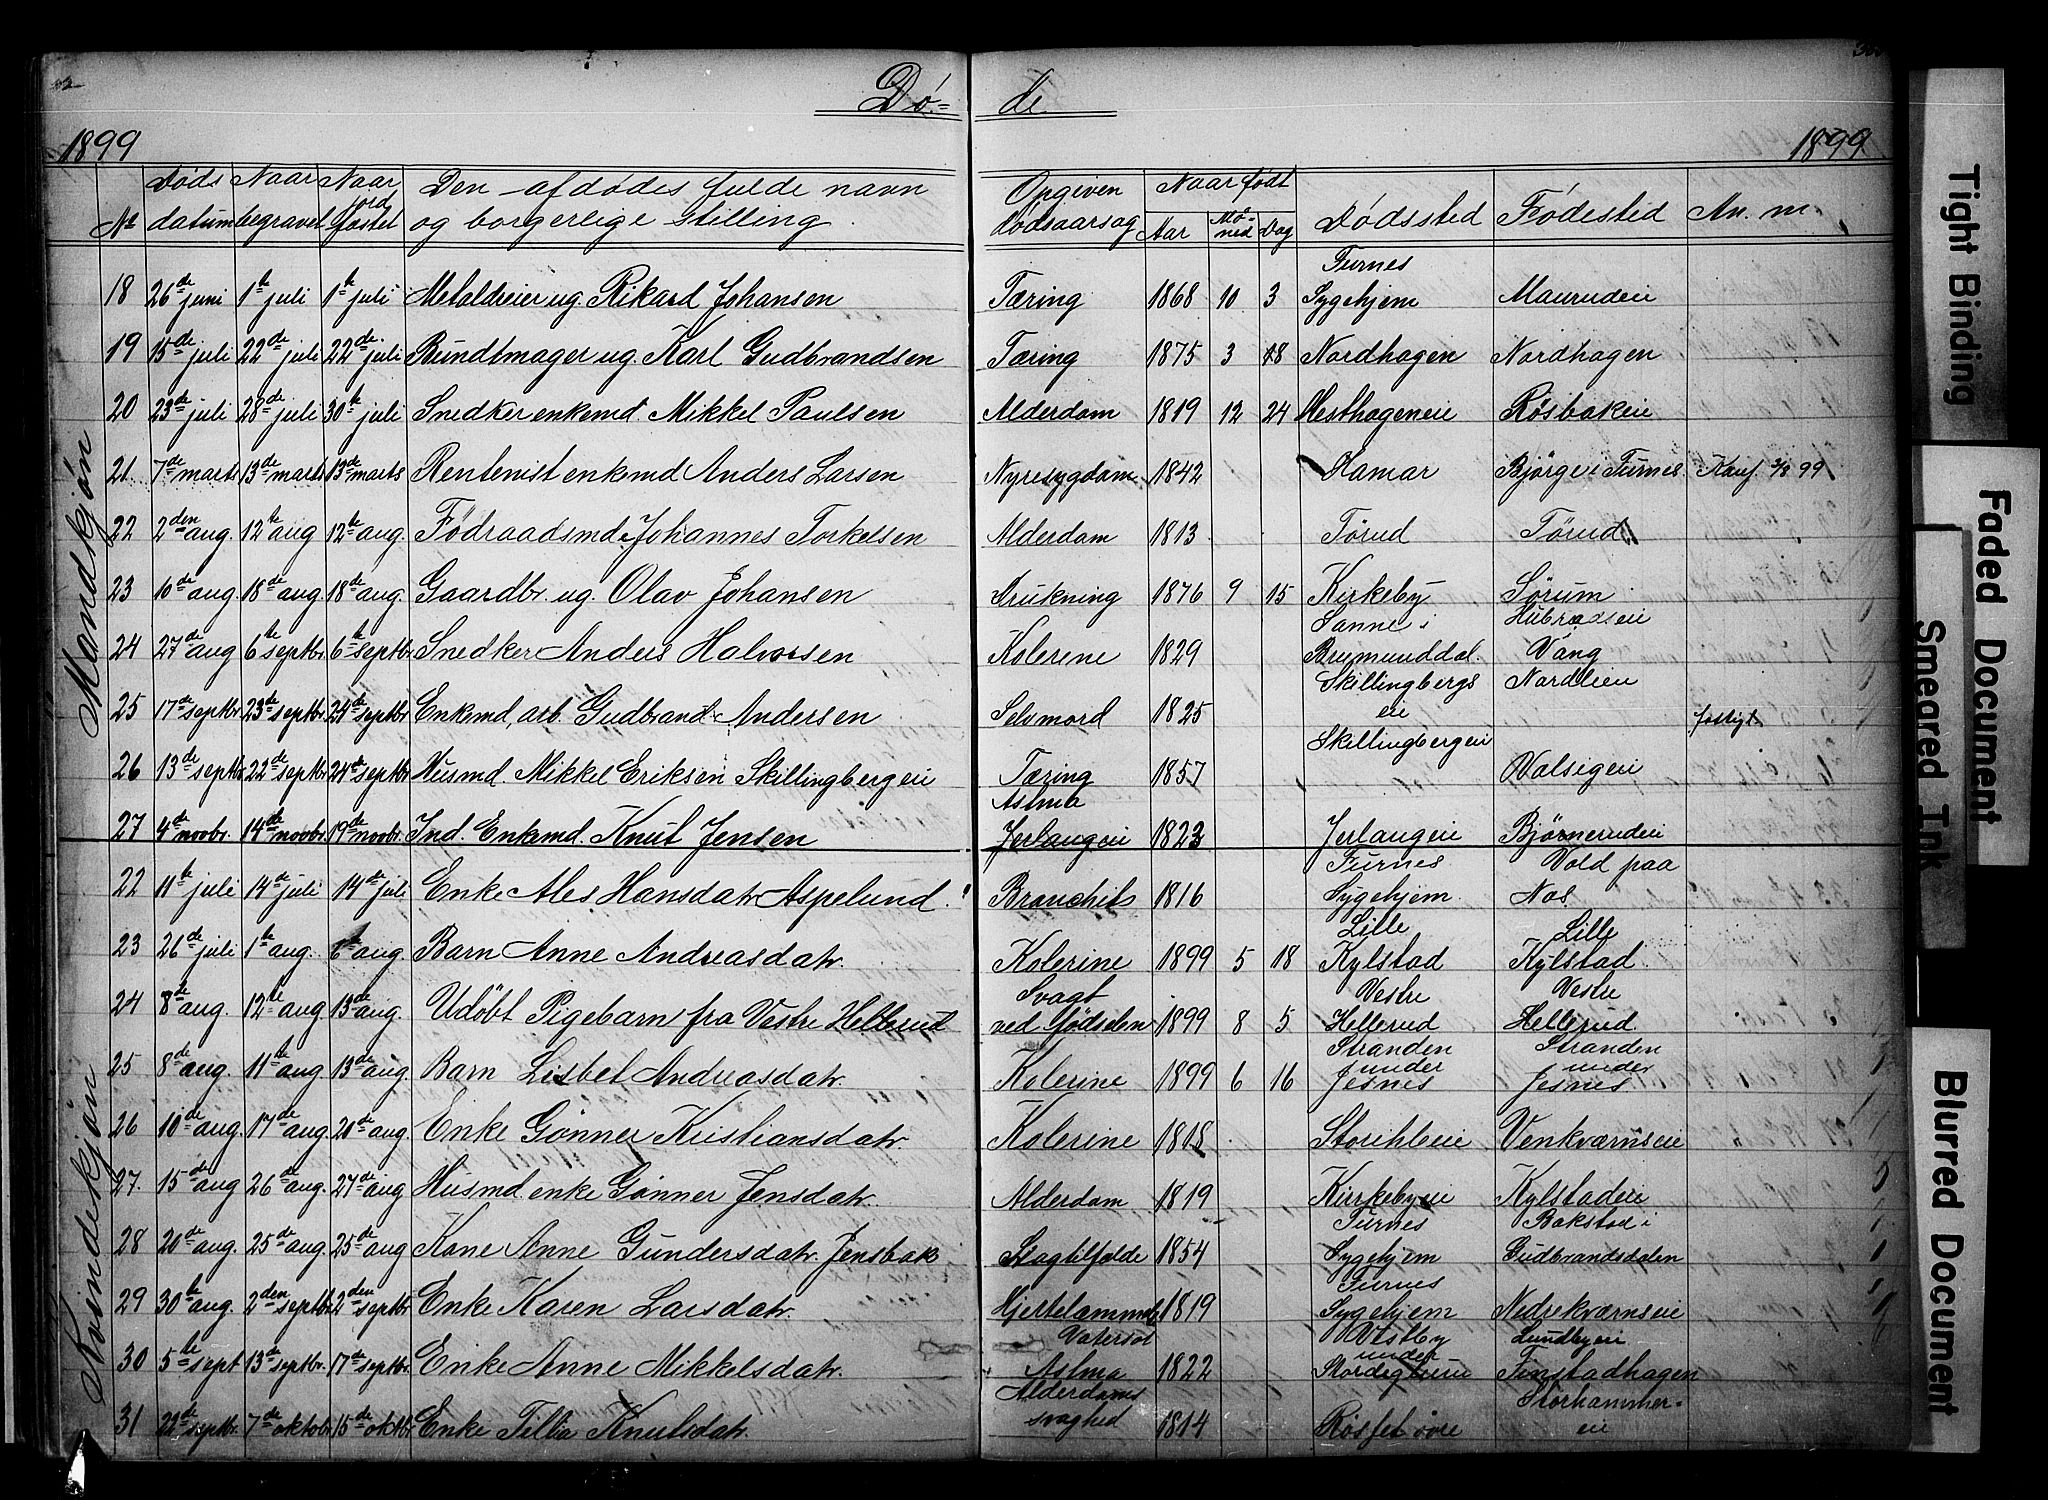 Dø= de
1899 1899
Mandkjøn
Kvindekjøn
№ Døds datum Naar begravet Naar jord fæstet Den afdødes fulde navn og borgerlige stilling Opgiven dødsaarsag Naar født Aar Mø-ned Dag Dødssted Fødested An. m.
18 26de juni 1te juli 1te juli Metaldreier ug. Rikard Johansen Tæring 1868 10 3 Furnes Sygehjem Maurudeie
19 15de juli 22de juli 22de juli Bundtmager ug. Karl Gudbrandsen Tæring 1875 3 18 Nordhagen Nordhagen
20 23de juli 28de juli 30te juli Snedker enkemd. Mikkel Paulsen Alderdom 1819 12 24 Hesthageneie Røsbakeie
21. 7de marts 13de marts 13de marts Rentenist enkmd Anders Larsen Nyresygdom 1842 Hamar Bjørge i Furnes. 99
22 2den aug. 12te aug 12te aug. Födraadsmd. Johannes Torkelsen Alderdom 1813 Tørud Tørud
23 10de aug. 18de aug. 18de aug. Gaardbr. ug. Olav Johansen Drukning 1876 9 15 Kirkeby Sørum
24 27de aug 6te septbr. 6te septbr. Snedker Anders Halvorsen Kolerine 1829 Sanne i Brumunddal. Hubradseie Vang
25 17de septbr. 23de septbr. 24de septbr. Enkemd. arb. Gudbrand Andersen Selvmord 1825 Skillingbergs eie Nordlien
26 13de septbr. 22de septbr. 24de septbr. Husmd. Mikkel Eriksen Skillingbergeie Tæring 1857 Skillingbergeie Valsigeie
27 4de novbr. 14de novbr. 19de novbr. Ind. Enkmd. Knut Jensen Astma Jerlangeie 1823 Jerlangeie Bjørnerudeie
22 11te juli 14de juli 14de juli Enke Ales Hansdatr Aspelund. Bronchit 1816 Furnes Sygehjem. Vold paa Nes.
23 26de juli 1te aug. 6te aug. Barn Anne Andreasdatr. Kolerine 1899 5 18 Lille Kylstad Lille Kylstad.
24 8de aug. 12te aug 13de aug. Udøbt Pigebarn fra Vestre Hellerud Svagt ved fødselen 1899 8 5 Vestre Hellerud Vestre Hellerud.
25 8de aug. 11te aug 13de aug. Barn Lisbet Andreasdatr. Kolerine 1899 6 16 Stranden under Jesnes Stranden under Jesnes
26 10de aug. 17de aug. 20de aug. Enke Gønner Kristiansdatr. Kolerine 1818 Venkværnseie
27. 15de aug 26de aug. 27de aug Husmd. enke Gønner Jensdatr. Alderdom 1819 Kirkebyeie Kylstadeie
28 20de aug. 25de aug. 25de aug Kone Anne Gundersdatr. Jensbak Slagtilfælde 1854 Furnes Sygehjem Bakstad i Gudbrandsdalen
29 30te aug. 2den septbr. 2den septbr. Enke Karen Larsdatr. Hjertelammelse 1819 Furnes Sygehjem Nedrekværnseie
30 5te sept. 13de septbr. 17de septbr. Enke Anne Mikkelsdatr. Vatersot Astma 1822 Vestby under Lundbyeie Finstadhagen
31 22de septbr. 7de oktobr. 15de oktbr. Enke Tillia Knutsdatr. Alderdoms svaghed 1814 Røsset øvre Storhammer-eie
Tight Binding
Faded Document
Smeared Ink
Blurred Document